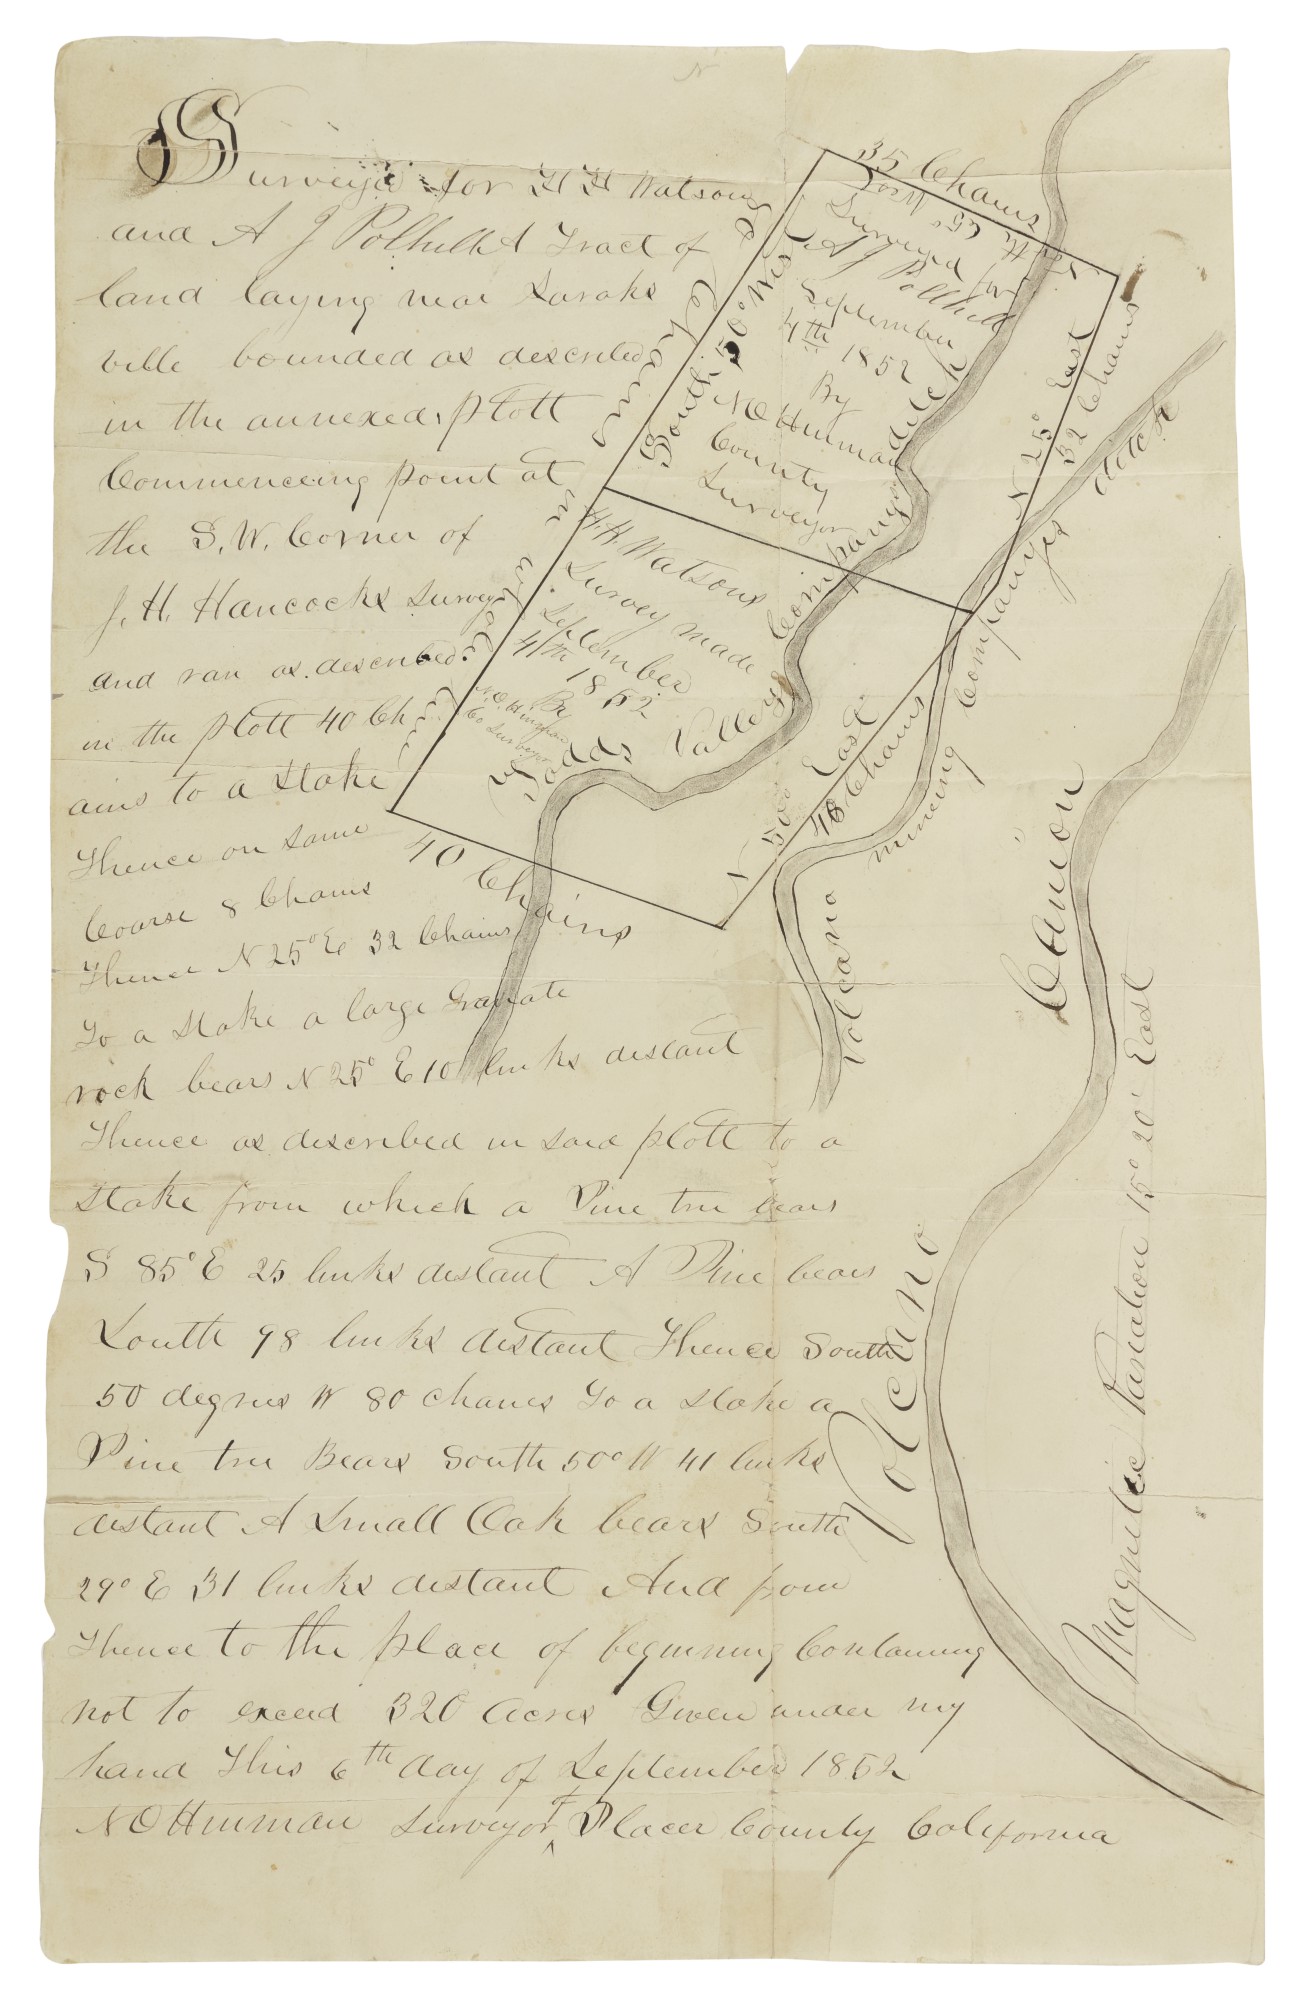 N
Surveyd for H H Watson
and A J Polhill A Tract of
land laying near Sarahs
ville bounded as described
in the annexed plott
Commenceing point at
the S. W. Corner of
J. H. Hancocks Survey
and ran as described
in the plott 40 Ch
ains to a Stake
Thence on same
Coarse 8 Chains
Thence N 25° E 32 Chains
To a Stake a large Granate
rock bears N 25° E 10 links distant
Thence as described in said plott to a
Stake from which a Pine tree bears
S 85° E 25 links distant A Pine bears
South 98 links distant Thence South
50 degrees W 80 chanes To a Stake a
Pine tree Bears South 50° W 41 links
distant A Small Oak bears South
29° E 31 links distant And from
Thence to the place of beginning Containing
not to exceed 320 Acres Given under my
hand This 6th day of September 1852
N O Hinman Surveyor of Placer County California
35 Chains
North 65° West
Surveyed for
A J Polhill
September
4th 1852
By
N O Hinman
County
Surveyor
South 50° West
80 Chains in whole
N 25° East
32 Chains
H. H. Watsons
Survey made
September
4th 1852
By
N. O. Hinman
Co Surveyor
Todds Valley Companys ditch
N 50° East
48 Chains
40 Chains
Volcano mineing Companyes ditch
Volcano Canion
Magnetic Variation 15° 20' East